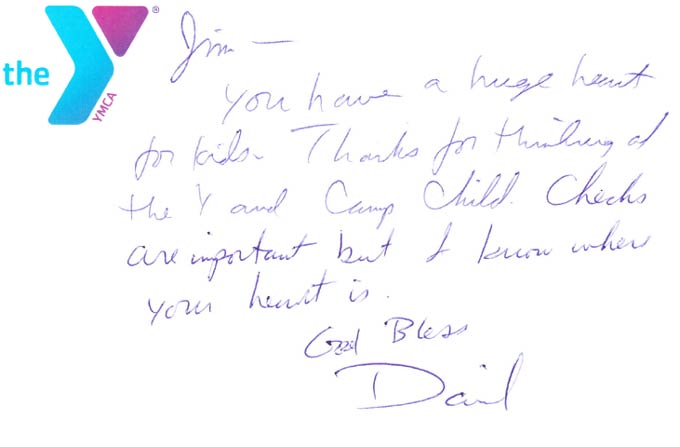 the
YMCA
®
Jim —
You have a huge heart
for kids. Thanks for thinking of
the Y and Camp Child. Checks
are important but I know where
your heart is.
God Bless
David